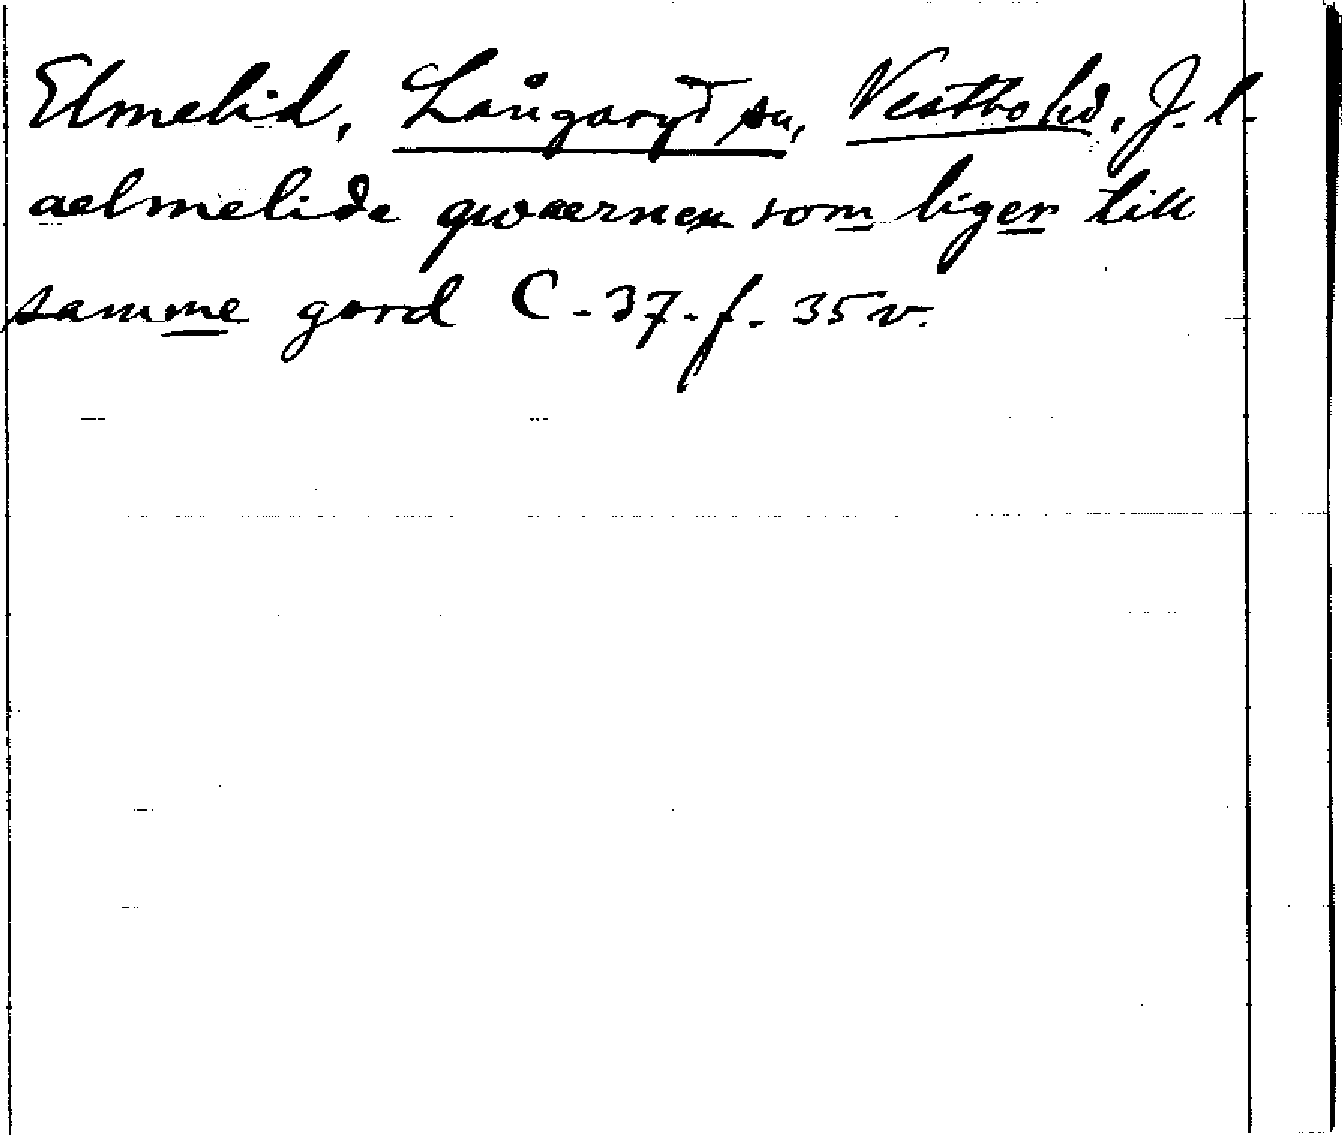 Elmelid, Långaryd sn, Vestbo hd, J. l.
aelmelide qwaernen som liger till
samme gord C-37-f. 35 v.